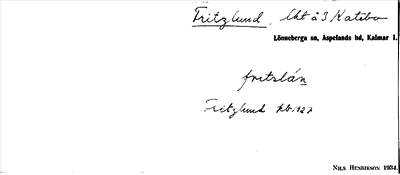 Fritzlund, lht å 3 Katebo
Lönneberga sn, Aspelands hd, Kalmar l.
fritslán
Fritzlund kb 1927
NILS HENRIKSON 1934.